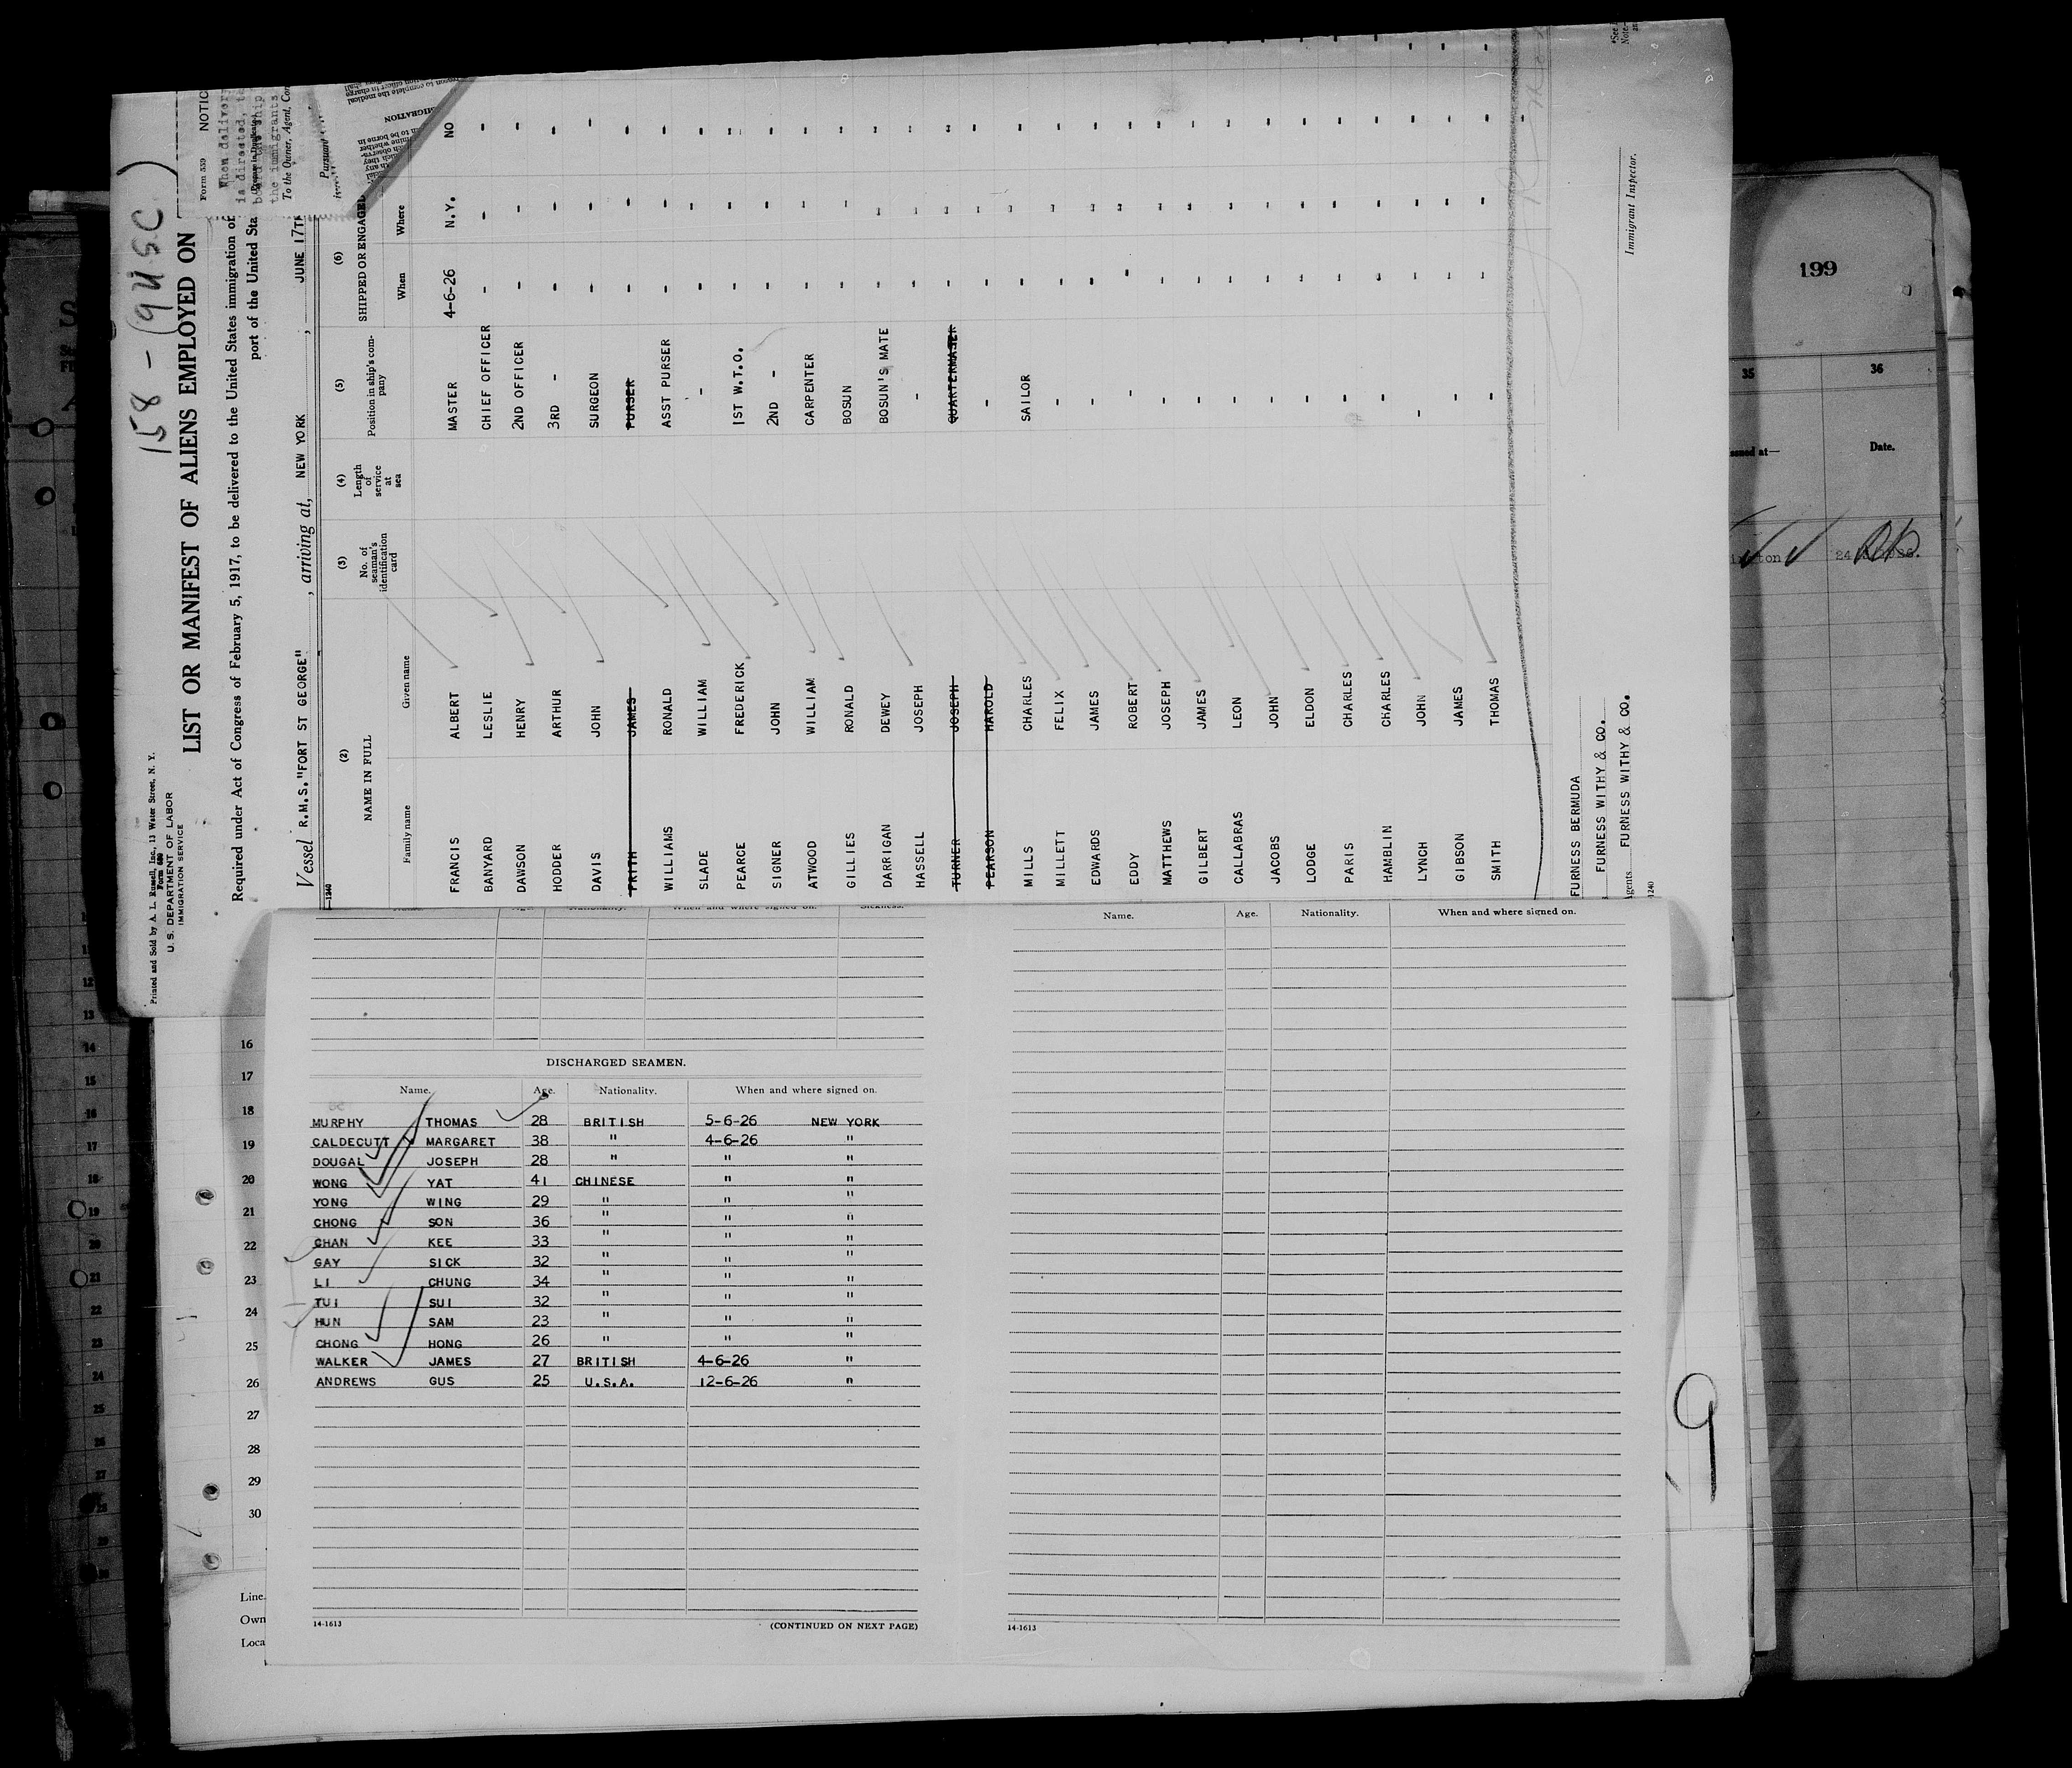 158 - (9USC)
Printed and Sold by A. L. Russell, Inc., 13 Water Street, N. Y.
Form 680
U. S. DEPARTMENT OF LABOR
IMMIGRATION SERVICE
LIST OR MANIFEST OF ALIENS EMPLOYED ON
Required under Act of Congress of February 5, 1917, to be delivered to the United States immigration of
port of the United Sta
Form 559 NOTIC
When deliver
is directed, to
the immigrants
To the Owner, Agent, Con
Pursuant
Vessel R.M.S. "FORT ST GEORGE", arriving at, NEW YORK, JUNE 17TH
(2) (3) (4) (5) (6)
NAME IN FULL No. of seaman's identification card Length of service at sea Position in ship's company SHIPPED OR ENGAGED
Family name Given name When Where
FRANCIS ALBERT MASTER 4-6-26 N.Y. NO
BANYARD LESLIE CHIEF OFFICER - - -
DAWSON HENRY 2ND OFFICER - - -
HODDER ARTHUR 3RD - - - -
DAVIS JOHN SURGEON - - -
FRITH JAMES PURSER - - -
WILLIAMS RONALD ASST PURSER - - -
SLADE WILLIAM - - - -
PEARCE FREDERICK 1ST W.T.O. - - -
SIGNER JOHN 2ND - - - -
ATWOOD WILLIAM CARPENTER - - -
GILLIES RONALD BOSUN - - -
DARRIGAN DEWEY BOSUN'S MATE - - -
HASSELL JOSEPH - - - -
TURNER JOSEPH QUARTERMASTER - - -
PEARSON HAROLD - - - -
MILLS CHARLES SAILOR - - -
MILLETT FELIX - - - -
EDWARDS JAMES - - - -
EDDY ROBERT - - - -
MATTHEWS JOSEPH - - - -
GILBERT JAMES - - - -
CALLABRAS LEON - - - -
JACOBS JOHN - - - -
LODGE ELDON - - - -
PARIS CHARLES - - - -
HAMBLIN CHARLES - - - -
LYNCH JOHN - - - -
GIBSON JAMES - - - -
SMITH THOMAS - - - -
FURNESS BERMUDA
FURNESS WITHY & CO.
gents FURNESS WITHY & CO.
Immigrant Inspector.
199
35 36
ssued at— Date.
Name. Age. Nationality. When and where signed on. Sickness.
DISCHARGED SEAMEN.
Name. Age. Nationality. When and where signed on.
MURPHY THOMAS 28 BRITISH 5-6-26 NEW YORK
CALDECUTT MARGARET 38 " 4-6-26 "
DOUGAL JOSEPH 28 " " "
WONG YAT 41 CHINESE " "
YONG WING 29 " " "
CHONG SON 36 " " "
CHAN KEE 33 " " "
GAY SICK 32 " " "
LI CHUNG 34 " " "
TUI SUI 32 " " "
HUN SAM 23 " " "
CHONG HONG 26 " " "
WALKER JAMES 27 BRITISH 4-6-26 "
ANDREWS GUS 25 U.S.A. 12-6-26 "
14-1613 (CONTINUED ON NEXT PAGE)
Name. Age. Nationality. When and where signed on.
14-1613
16
17
18
19
20
21
22
23
24
25
26
27
28
29
30
Line
Own
Loca
9